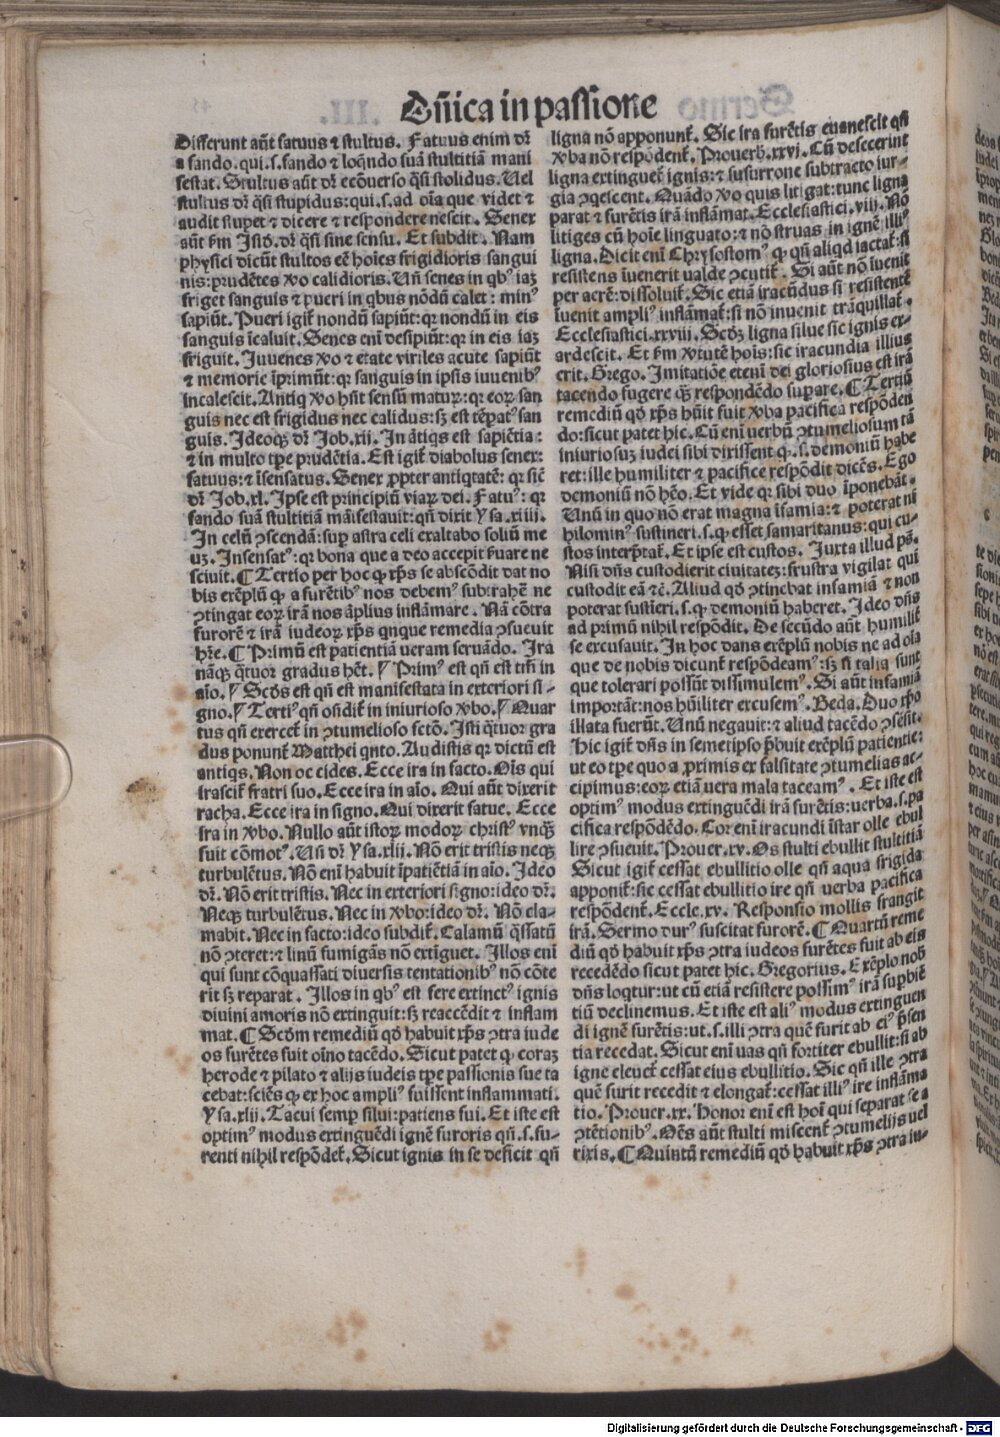 Dn̄ica in passione
Differunt aūt fatuus ⁊ stultus. Fatuus enim dr̄
a fando.qui.s.fando ⁊ loq̄ndo suā stultitiā mani
festat. Stultus aūt dr̄ ecōuerso q̄si stolidus. Uel
stultus dr̄ q̄si stupidus: qui.s.ad oīa que videt ⁊
audit stupet ⁊ dicere ⁊ respondere nescit. Senex
aūt ẜm Isid.dr̄ q̄si sine sensu. Et subdit. Nam
physici dicūt stultos eē hoīes frigidioris sangui
nis: prudētes ꝟo calidioris. Un̄ senes in qbꝰ iaꝫ
friget sanguis ⁊ pueri in qbus nōdū calet: minꝰ
sapiūt. Pueri igiť nondū sapiūt: qꝛ nondū in eis
sanguis īcaluit. Senes enī desipiūt: qꝛ in eis iaꝫ
friguit. Iuuenes ꝟo ⁊ etate viriles acute sapiūt
⁊ memorie īprimūt: qꝛ sanguis in ipsis iuuenibꝰ
incalescit. Antiq ꝟo hn̄t sensū matuꝝ: qꝛ eoꝝ san
guis nec est frigidus nec calidus: sꝫ est tēpatꝰ san
guis. Ideoqꝫ dr̄ Job.xij. In ātiqs est sapiētia:
⁊ in multo tꝑe prudētia. Est igiť diabolus senex:
fatuus: ⁊ īsensatus. Senex ꝓpter antiqtatē: qꝛ sic̄
dr̄ Job.xl. Ipse est principiū viaꝝ dei. Fatuꝰ: qꝛ
fando suā stultitiā māifestauit: qn̄ dixit Ysa.xiiij.
In celū ꝯscendā: suꝑ astra celi exaltabo soliū me
uꝫ. Insensatꝰ: qꝛ bona que a deo accepit ẜuare ne
sciuit. ¶ Tertio per hoc ꝙ xp̄s se abscōdit dat no
bis exēplū ꝙ a furētibꝰ nos debemꝰ subtrahē ne
ꝯtingat eoꝝ irā nos āplius inflāmare. Nā cōtra
furorē ⁊ irā iudeoꝝ xp̄s qnque remedia ꝯsueuit
hr̄e. ¶ Primū est patientiā ueram seruādo. Ira
nāqꝫ q̄tuor gradus hēt. ¶ Primꝰ est qn̄ est tm̄ in
aīo. ¶ Scd̄s est qn̄ est manifestata in exteriori si-
gno. ¶ Tertiꝰ qn̄ oñdiť in iniurioso ꝟbo. ¶ Quar
tus qn̄ exerceť in ꝯtumelioso fctō. Isti q̄tuor gra
dus ponunť Matthei qnto. Audistis qꝛ dictū est
antiqs. Non occides. Ecce ira in facto. Oīs qui
irasciť fratri suo. Ecce ira in aīo. Qui aūt dixerit
racha. Ecce ira in signo. Qui dixerit fatue. Ecce
ira in ꝟbo. Nullo aūt istoꝝ modoꝝ christꝰ vnqꝫ
fuit cōmotꝰ. Un̄ dr̄ Ysa.xlij. Nō erit tristis neqꝫ
turbulētus. Nō enī habuit īpatiētiā in aīo. Ideo
dr̄. Nō erit tristis. Nec in exteriori signo: ideo dr̄.
Neqꝫ turbulētus. Nec in ꝟbo: ideo dr̄. Nō cla-
mabit. Nec in facto: ideo subdiť. Calamū q̄ssatū
nō ꝯteret: ⁊ linū fumigās nō extīguet. Illos enī
qui sunt cōquassati diuersis tentationibꝰ nō cōte
rit sꝫ reparat. Illos in qbꝰ est fere extinctꝰ ignis
diuini amoris nō extinguit: sꝫ reaccēdit ⁊ inflam
mat. ¶ Scd̄m remediū qd̄ habuit xp̄s ꝯtra iude
os furētes fuit oīno tacēdo. Sicut patet ꝙ coraꝫ
herode ⁊ pilato ⁊ alijs iudeis tꝑe passionis sue ta
cebat: sciēs ꝙ ex hoc ampliꝰ fuissent inflammati.
Ysa.xlij. Tacui semꝑ silui: patiens fui. Et iste est
optimꝰ modus extinguēdi ignē furoris qn̄.s.fu-
renti nihil respōdeť. Sicut ignis in se deficit qn̄
ligna nō apponunť. Sic ira furētis euanescit qn̄
ꝟba nō respōdenť. Prouerb.xxvi. Cū defecerint
ligna extingueť ignis: ⁊ susurrone subtracto iur-
gia ꝯqescent. Quādo ꝟo quis litigat: tunc ligna
parat ⁊ furētis irā inflāmat. Ecclesiastici.viij. Nō
litiges cū hoīe linguato: ⁊ nō struas in ignē illiꝰ
ligna. Dicit enī Chrysostomꝰ ꝙ qn̄ aliqd iactať: si
resistens īuenerit ualde ꝯcutiť. Si aūt nō īuenit
per acrē: dissoluiť. Sic etiā iracūdus si resistentē
īuenit ampliꝰ inflāmať: si nō inuenit trāquillať.
Ecclesiastici.xxviij. Scd̄ꝫ ligna silue sic ignis ex-
ardescit. Et ẜm ꝟtutē hoīs: sic iracundia illius
erit. Grego. Imitatiōe etenī dei gloriosius est irā
tacendo fugere qꝫ respondēdo suꝑare. ¶ Tertiū
remediū qd̄ xp̄s hūit fuit ꝟba pacifica respōden
do: sicut patet hic. Cū enī uerbū ꝯtumeliosum tā
iniuriosuꝫ iudei sibi dixissent ꝙ.s.demoniū habe
ret: ille humiliter ⁊ pacifice respōdit dicēs. Ego
demoniū nō hēo. Et vide qꝛ sibi duo īponebāt.
Unū in quo nō erat magna īfamia: ⁊ poterat ni
hilominꝰ sustineri.s.ꝙ esset samaritanus: qui cu-
stos interp̄tať. Et ipse est custos. Iuxta illud ps̄.
Nisi dn̄s custodierit ciuitateꝫ: frustra vigilat qui
custodit eā ⁊c̄. Aliud qd̄ ꝯtinebat infamiā ⁊ non
poterat sustīeri.s.ꝙ demoniū haberet. Ideo dn̄s
ad primū nihil respōdit. De secūdo aūt humiliť
se excusauit. In hoc dans exēplū nobis ne ad oīa
que de nobis dicunť respōdeamꝰ: sꝫ si talia sunt
que tolerari possūt dissimulemꝰ. Si aūt infamiā
importāt: nos hūiliter excusemꝰ. Beda. Duo xp̄o
illata fuerūt. Unū negauit: ⁊ aliud tacēdo ꝯsēsit.
Hic igiť dn̄s in semetipso p̄buit exēplū patientie:
ut eo tꝑe quo a ꝓximis ex falsitate ꝯtumelias ac-
cipimus: eoꝝ etiā uera mala taceamꝰ. Et iste est
optimꝰ modus extinguēdi irā furētis: uerba.s.pa
cifica respōdēdo. Cor enī iracundi īstar olle ebul
lire ꝯsueuit. Prouer.xv. Os stulti ebullit stultitiā
Sicut igiť cessat ebullitio olle qn̄ aqua frigida
apponiť: sic cessat ebullitio ire qn̄ uerba pacifica
respōdenť. Eccle.xv. Responsio mollis frangit
irā. Sermo durꝰ suscitat furorē. ¶ Quartū reme
diū qd̄ habuit xp̄s ꝯtra iudeos furētes fuit ab eis
recedēdo sicut patet hic. Gregorius. Exēplo nob̄
dn̄s loqtur: ut cū etiā resistere possimꝰ irā suꝑbiē
tiū declinemus. Et iste est aliꝰ modus extinguen
di ignē furētis: ut.s.illi ꝯtra quē furit ab eiꝰ p̄sen
tia recedat. Sicut enī uas qn̄ fortiter ebullit: si ab
igne eleueť cessat eius ebullitio. Sic qn̄ ille ꝯtra
quē furit recedit ⁊ elongať: cessat illiꝰ ire inflāma
tio. Prouer.xx. Honor enī est hoī qui separat se a
ꝯtētionibꝰ. Oēs aūt stulti miscenť ꝯtumelijs uel
rixis. ¶ Quintū remediū qd̄ habuit xp̄s ꝯtra iu-
Digitalisierung gefördert durch die Deutsche Forschungsgemeinschaft - DFG